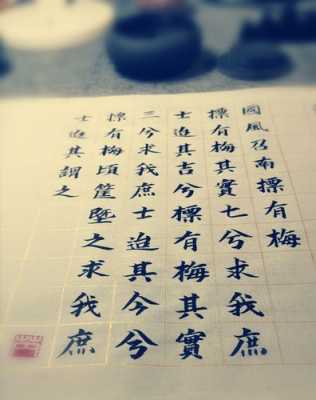 國風召南摽有梅
摽有梅其實七兮求我庶
士迨其吉兮摽有梅其實
三兮求我庶士迨其今兮
摽有梅頃筐塈之求我庶
士迨其謂之